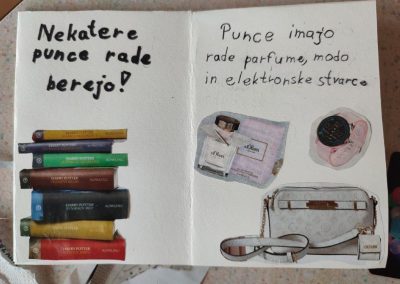 Nekatere
punce rade
berejo!
Punce imajo
rade parfume, modo
in elektronske stvarce
HARRY POTTER
HARRY POTTER
HARRY POTTER
HARRY POTTER
HARRY POTTER
HARRY POTTER
HARRY POTTER
s.Oliver
s.Oliver
GUESS